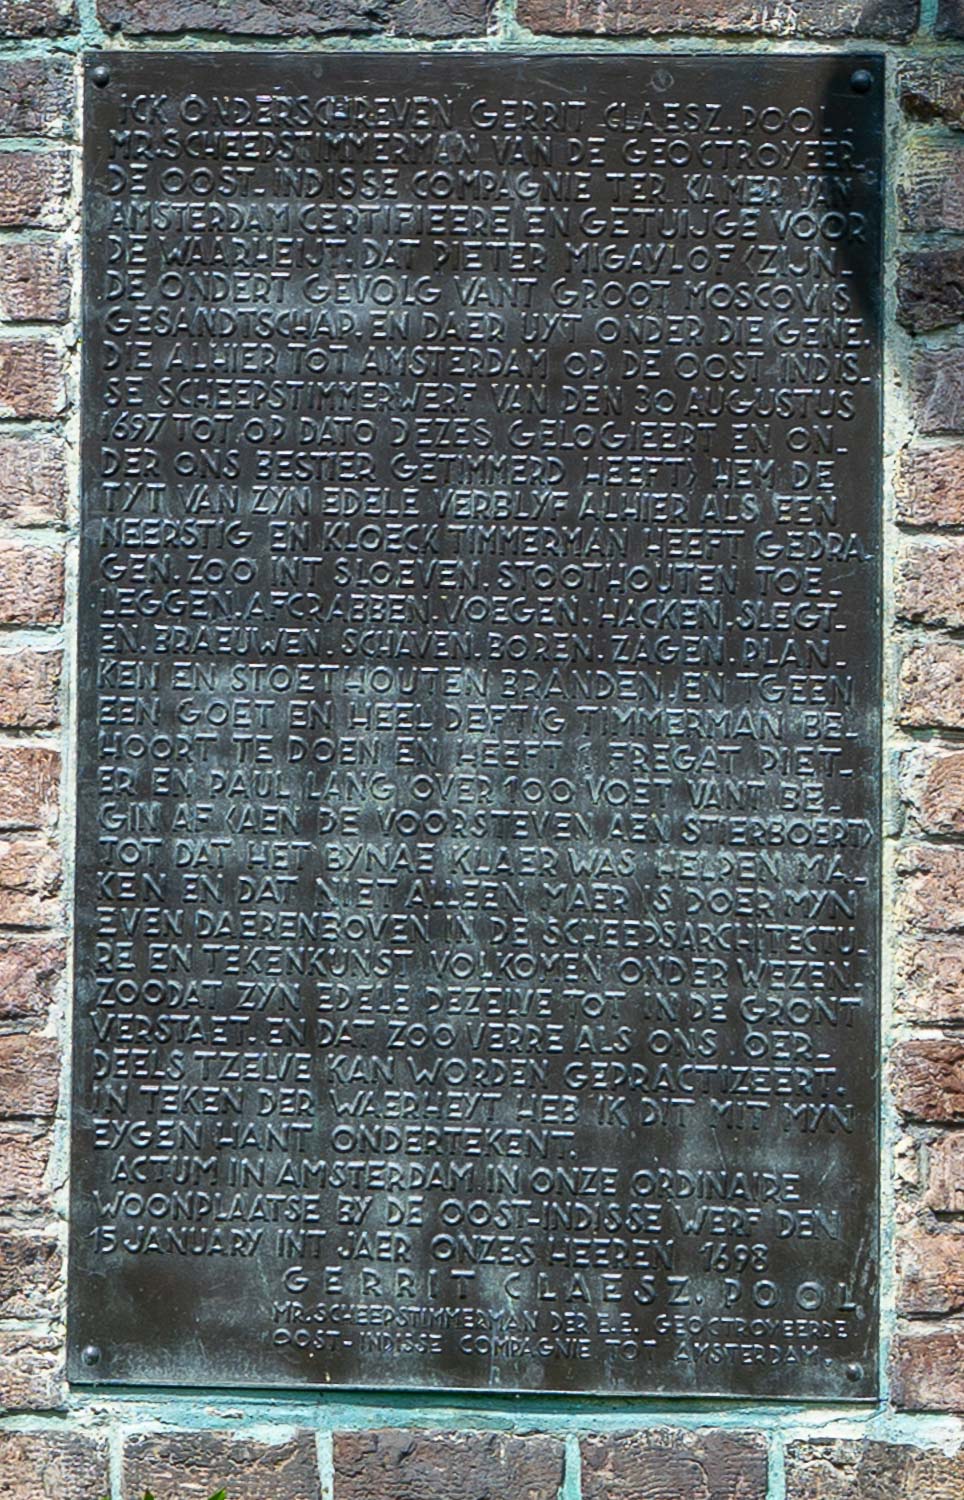 ICK ONDERSCHREVEN GERRIT CLAESZ. POOL.
MR. SCHEEPSTIMMERMAN VAN DE GEOCTROYEER-
DE OOST-INDISSE COMPAGNIE TER KAMER VAN
AMSTERDAM CERTIFIEERE EN GETUIJGE VOOR
DE WAARHEIJT. DAT PIETER MIGAYLOF (ZIJN-
DE ONDERT GEVOLG VANT GROOT MOSCOVIIS
GESANDTSCHAP. EN DAER UYT ONDER DIE GENE.
DIE ALHIER TOT AMSTERDAM OP DE OOST INDIS-
SE SCHEEPSTIMMERWERF VAN DEN 30 AUGUSTUS
1697 TOT OP DATO DEZES GELOGIEERT EN ON-
DER ONS BESTIER GETIMMERD HEEFT) HEM DE
TYT VAN ZYN EDELE VERBLYF ALHIER ALS EEN
NEERSTIG EN KLOECK TIMMERMAN HEEFT GEDRA-
GEN. ZOO INT SLOEVEN. STOOTHOUTEN TOE-
LEGGEN. AFCRABBEN. VOEGEN. HACKEN. SLEGT-
EN. BRAEUWEN. SCHAVEN. BOREN. ZAGEN. PLAN-
KEN EN STOETHOUTEN BRANDEN. EN TGEEN
EEN GOET EN HEEL DEFTIG TIMMERMAN BE-
HOORT TE DOEN EN HEEFT 1 FREGAT PIET-
ER EN PAUL LANG OVER 100 VOET VANT BE-
GIN AF (AEN DE VOORSTEVEN AEN STIERBOERT)
TOT DAT HET BYNAE KLAER WAS HELPEN MA-
KEN EN DAT NIET ALLEEN MAER IS DOER MYN
EVEN DAERENBOVEN IN DE SCHEEPSARCHITECTU-
RE EN TEKENKUNST VOLKOMEN ONDERWEZEN.
ZOODAT ZYN EDELE DEZELVE TOT IN DE GRONT
VERSTAET. EN DAT ZOO VERRE ALS ONS OER-
DEELS TZELVE KAN WORDEN GEPRACTIZEERT.
IN TEKEN DER WAERHEYT HEB IK DIT MIT MYN
EYGEN HANT ONDERTEKENT.
ACTUM IN AMSTERDAM. IN ONZE ORDINAIRE
WOONPLAATSE BY DE OOST-INDISSE WERF DEN
15 JANUARY INT JAER ONZES HEEREN 1698
GERRIT CLAESZ. POOL
MR. SCHEEPSTIMMERMAN DER E.E. GEOCTROYEERDE
OOST-INDISSE COMPAGNIE TOT AMSTERDAM.